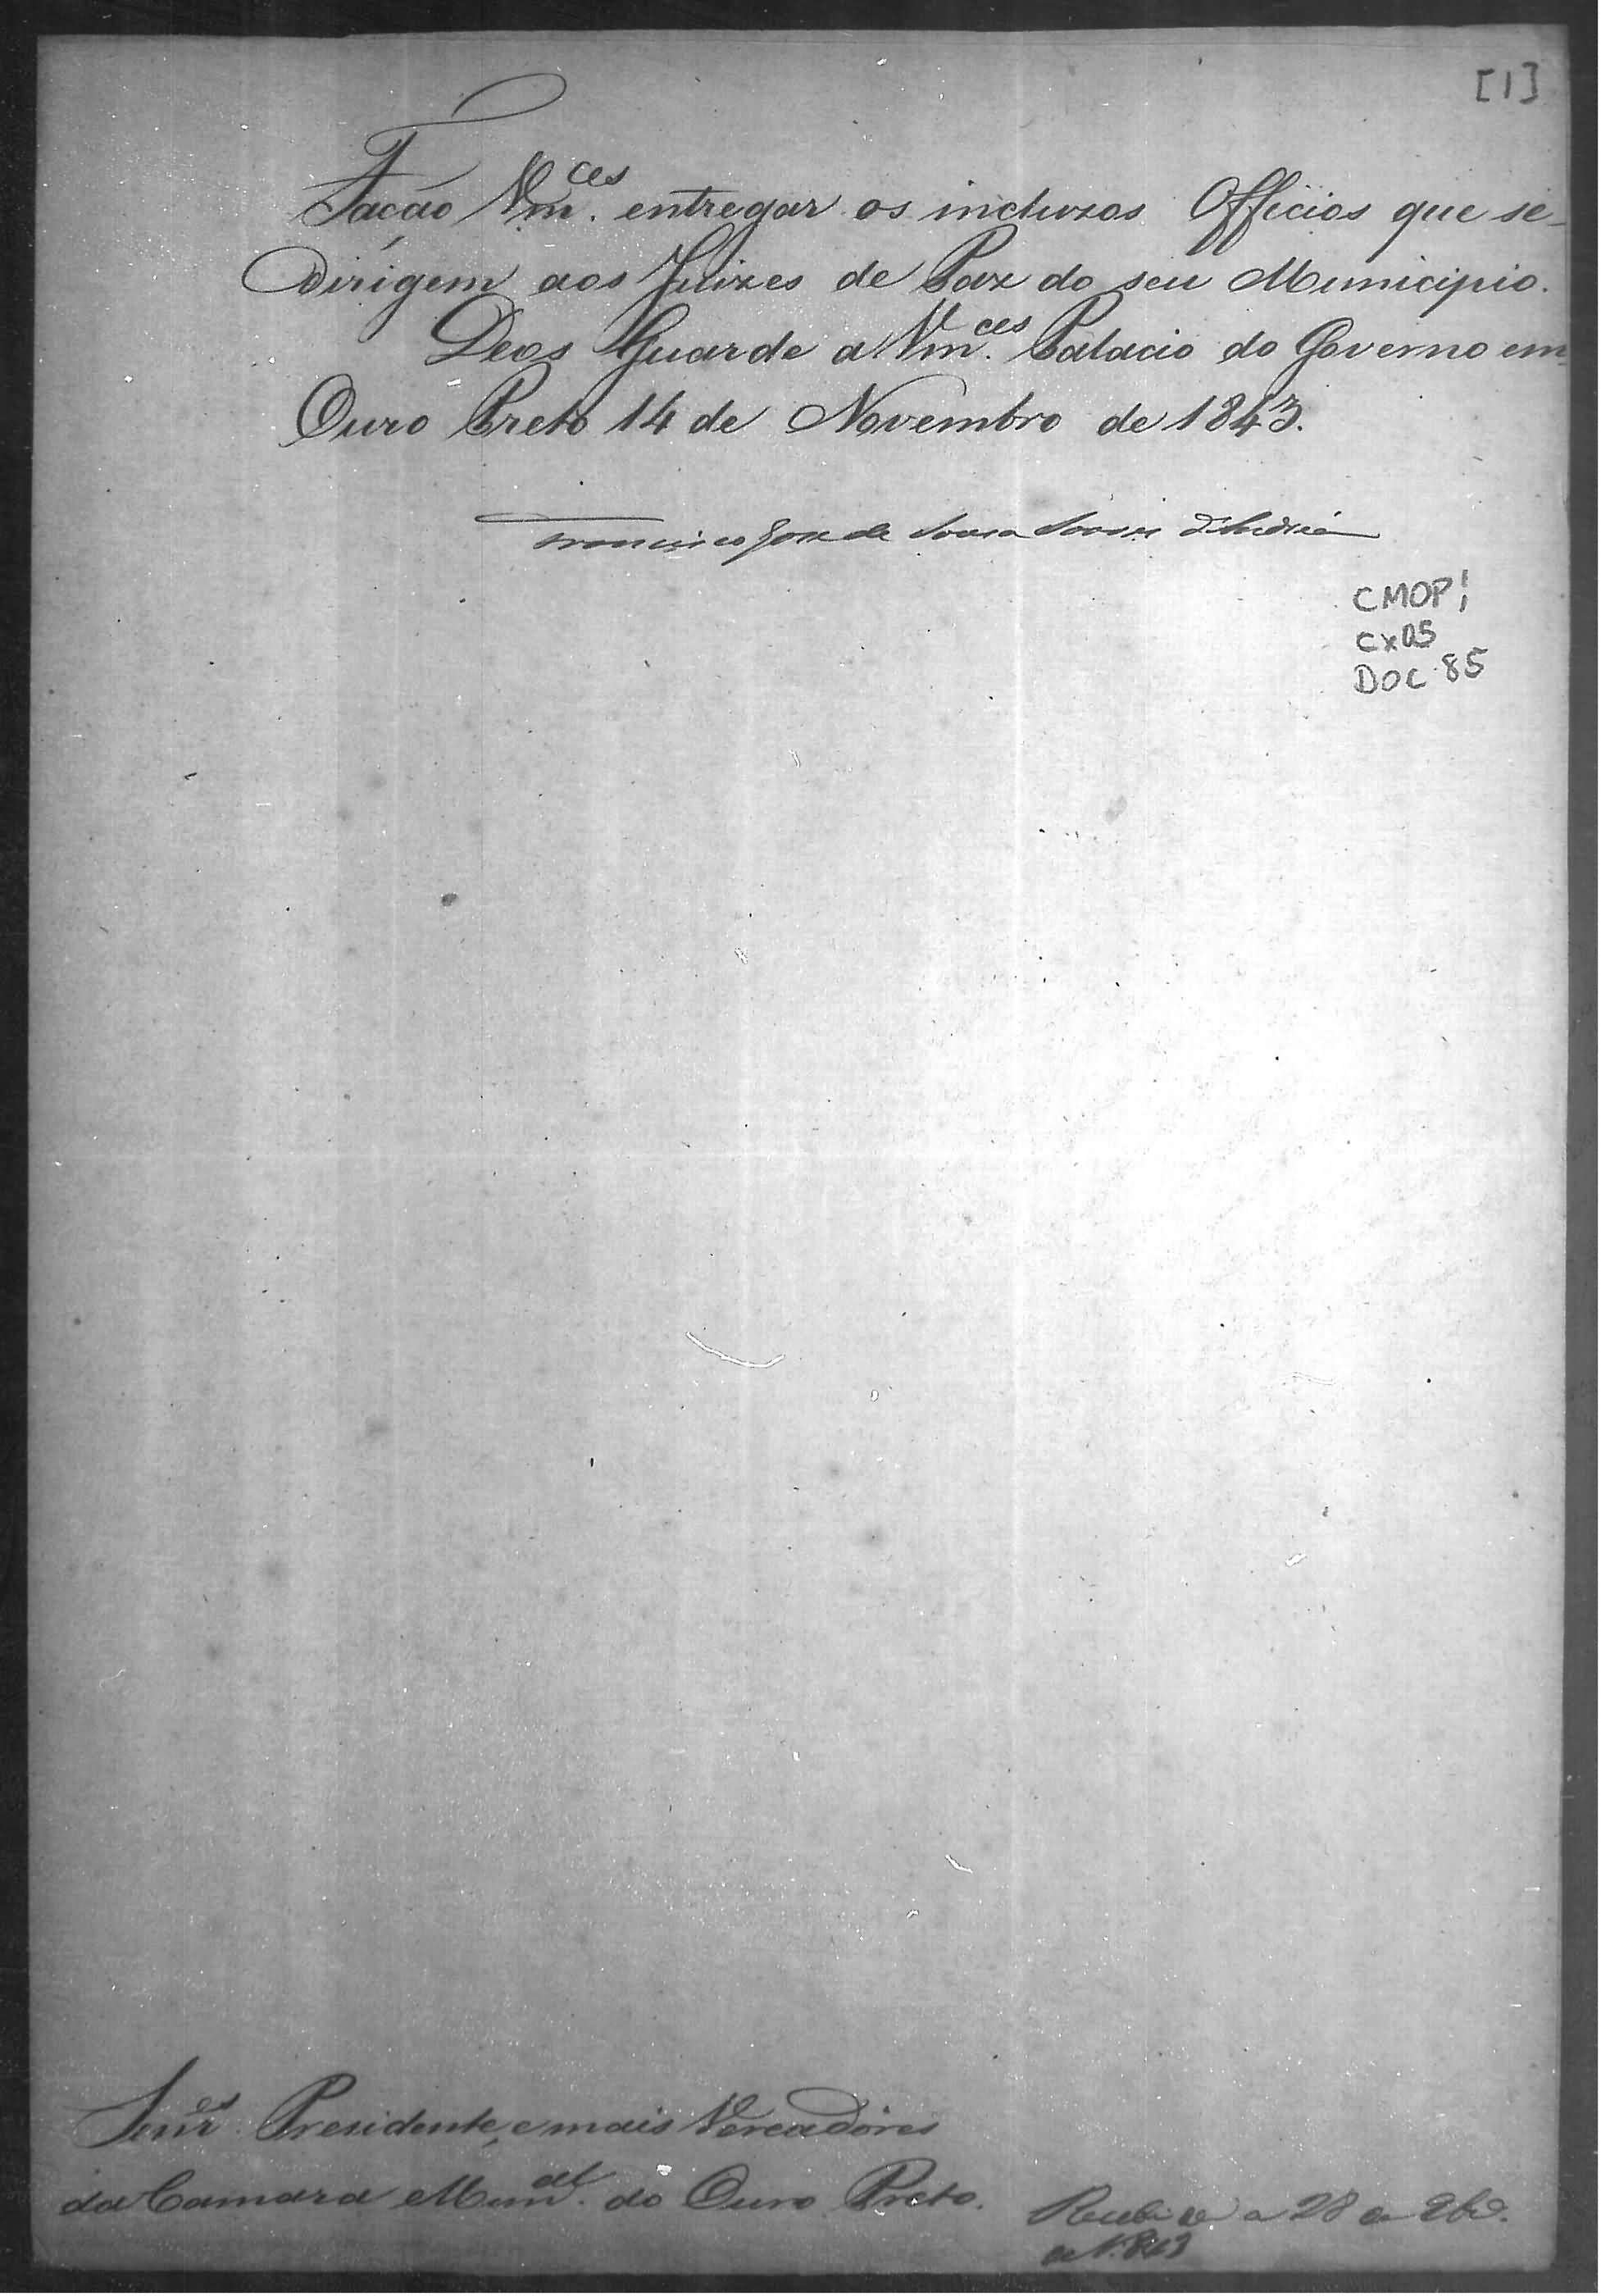 [1]
Fação Vm.ces entregar os incluzos Officios que se-
dirigem aos Juizes de Paz do seu Municipio.
Deos Guarde a Vm.ces Palacio do Governo em
Ouro Preto 14 de Novembro de 1843.
Francisco José de Souza Soares d'Andréa
CMOP¦
CX05
DOC 85
Senr.es Presidente, e mais Vereadores
da Camara Mun.al do Ouro Preto.
a 28 de 9br.o